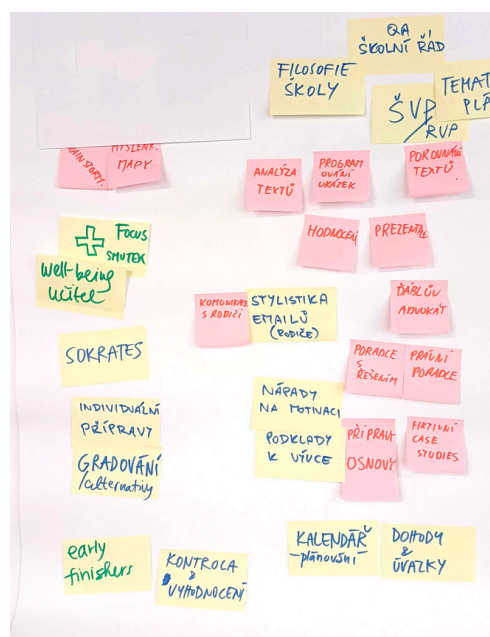 QA
ŠKOLNÍ ŘÁD
FILOSOFIE
ŠKOLY
TEMAT
PLÁ
ŠVP
/RVP
MYŠLENK.
MAPY
ANALÝZA
TEXTŮ
PROGRAM
OVÁNÍ
UKÁZEK
POROVNÁNÍ
TEXTŮ
HODNOCENÍ
PREZENTACE
+ FOCUS
SMUTEK
Well-being
učitel
KOMUNIKACE
S RODIČI
STYLISTIKA
EMAILŮ
(RODIČE)
ĎÁBLŮV
ADVOKÁT
SOKRATES
PORADCE
S
ŘEŠENÍM
PRÁVNÍ
PORADCE
INDIVIDUÁLNÍ
PŘÍPRAVY
NÁPADY
NA MOTIVACI
GRADOVÁNÍ
/alternativy
PODKLADY
K VÝUCE
PŘÍPRAVY
OSNOVY
FIKTIVNÍ
CASE
STUDIES
early
finishers
KONTROLA
&
VYHODNOCENÍ
KALENDÁŘ
-plánování
DOHODY
&
ÚVAZKY